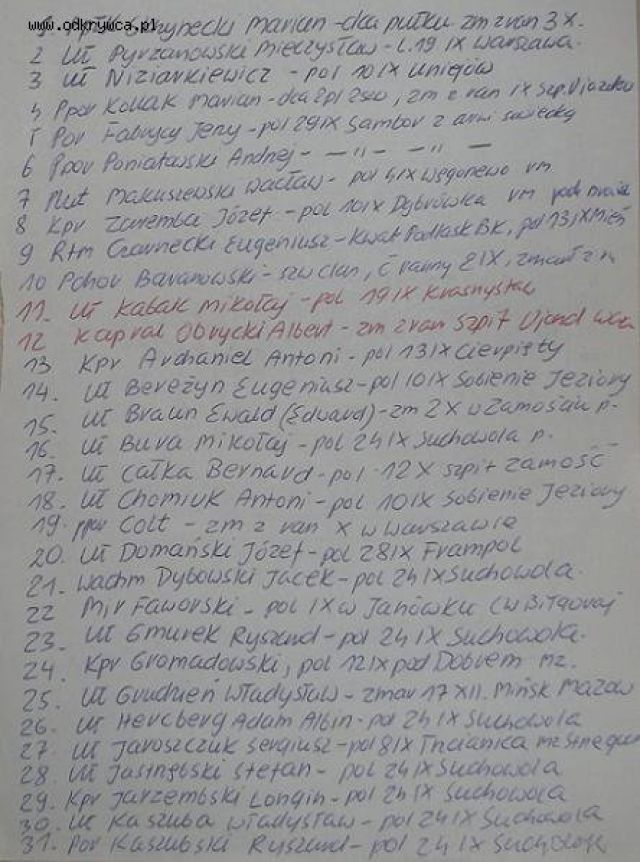 www.odkrywca.pl
Marian - dca pułku zm z ran 3 X.
2 Uł Pyrzanowski Mieczysław - 19 IX Warszawa.
3 Uł Niziarkiewicz - pol 10 IX Uniejów
4 Ppor Kollak Marian - dca 2 pl 2 szw, zm z ran IX Szp. Ujazdów
5 Por Fabrycy Jerzy - pol 29 IX Sambor z arm sowiecką
6 Ppor Poniatowski Andrzej - — 〃 — - 〃 —
7 Plut Makuszewski Wacław - pol 4 IX Węgonewo vm
8 Kpr Zaremba Józef - pol 10 IX Dąbrówka vm
9 Rtm Czarnecki Eugeniusz - Kwat Podlask BK, pol 13 IX Mień
10 Pchor Baranowski - szw ckm, C ranny 2 IX, zmarł z r
11. Uł Kabak Mikołaj - pol 19 IX Krasnystaw
12 Kapral Obrycki Albert - zm z ran Szpit Ujazd Wa
13 Kpr Archaniel Antoni - pol 13 IX Cierpięty
14. Uł Bereżyn Eugeniusz - pol 10 IX Sobienie Jeziory
15. Uł Braun Ewald (Edward) - zm 2 X w Zamościu p.
16. Uł Bura Mikołaj - pol 24 IX Suchowola p.
17. Uł Całka Bernard - pol 12 X szpit Zamość
18. Uł Chomiuk Antoni - pol 10 IX Sobienie Jeziory
19. ppor Colt - zm z ran X w Warszawie
20. Uł Domański Józef - pol 28 IX Frampol
21. Wachm Dybowski Jacek - pol 24 IX Suchowola.
22 Mjr Faworski - pol IX w Janówku (w Biłgoraj
23. Uł Gmurek Ryszard - pol 24 IX Suchowola.
24. Kpr Gromadowski, pol 12 IX pod Dobrem mz.
25. Uł Grudzień Władysław - zmar 17 XII. Mińsk Mazow
26. Uł Hercberg Adam Albin - pol 24 IX Suchowola
27 Uł Jaroszczuk Sergiusz - pol 8 IX Tncianica mz
28. Uł Jastrzębski Stefan - pol 24 IX Suchowola
29. Kpr Jarzembski Longin - pol 24 IX Suchowola
30. Uł Kaszuba Władysław - pol 24 IX Suchowola
31. Por Kaszubski Ryszard - pol 24 IX Suchowola